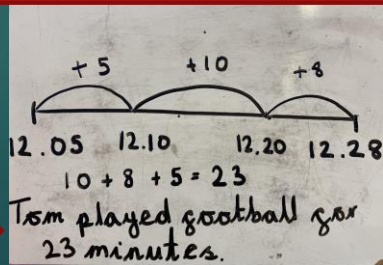 + 5 +10 +8
12.05 12.10 12.20 12.28
10 + 8 + 5 = 23
Tom played football for
23 minutes.